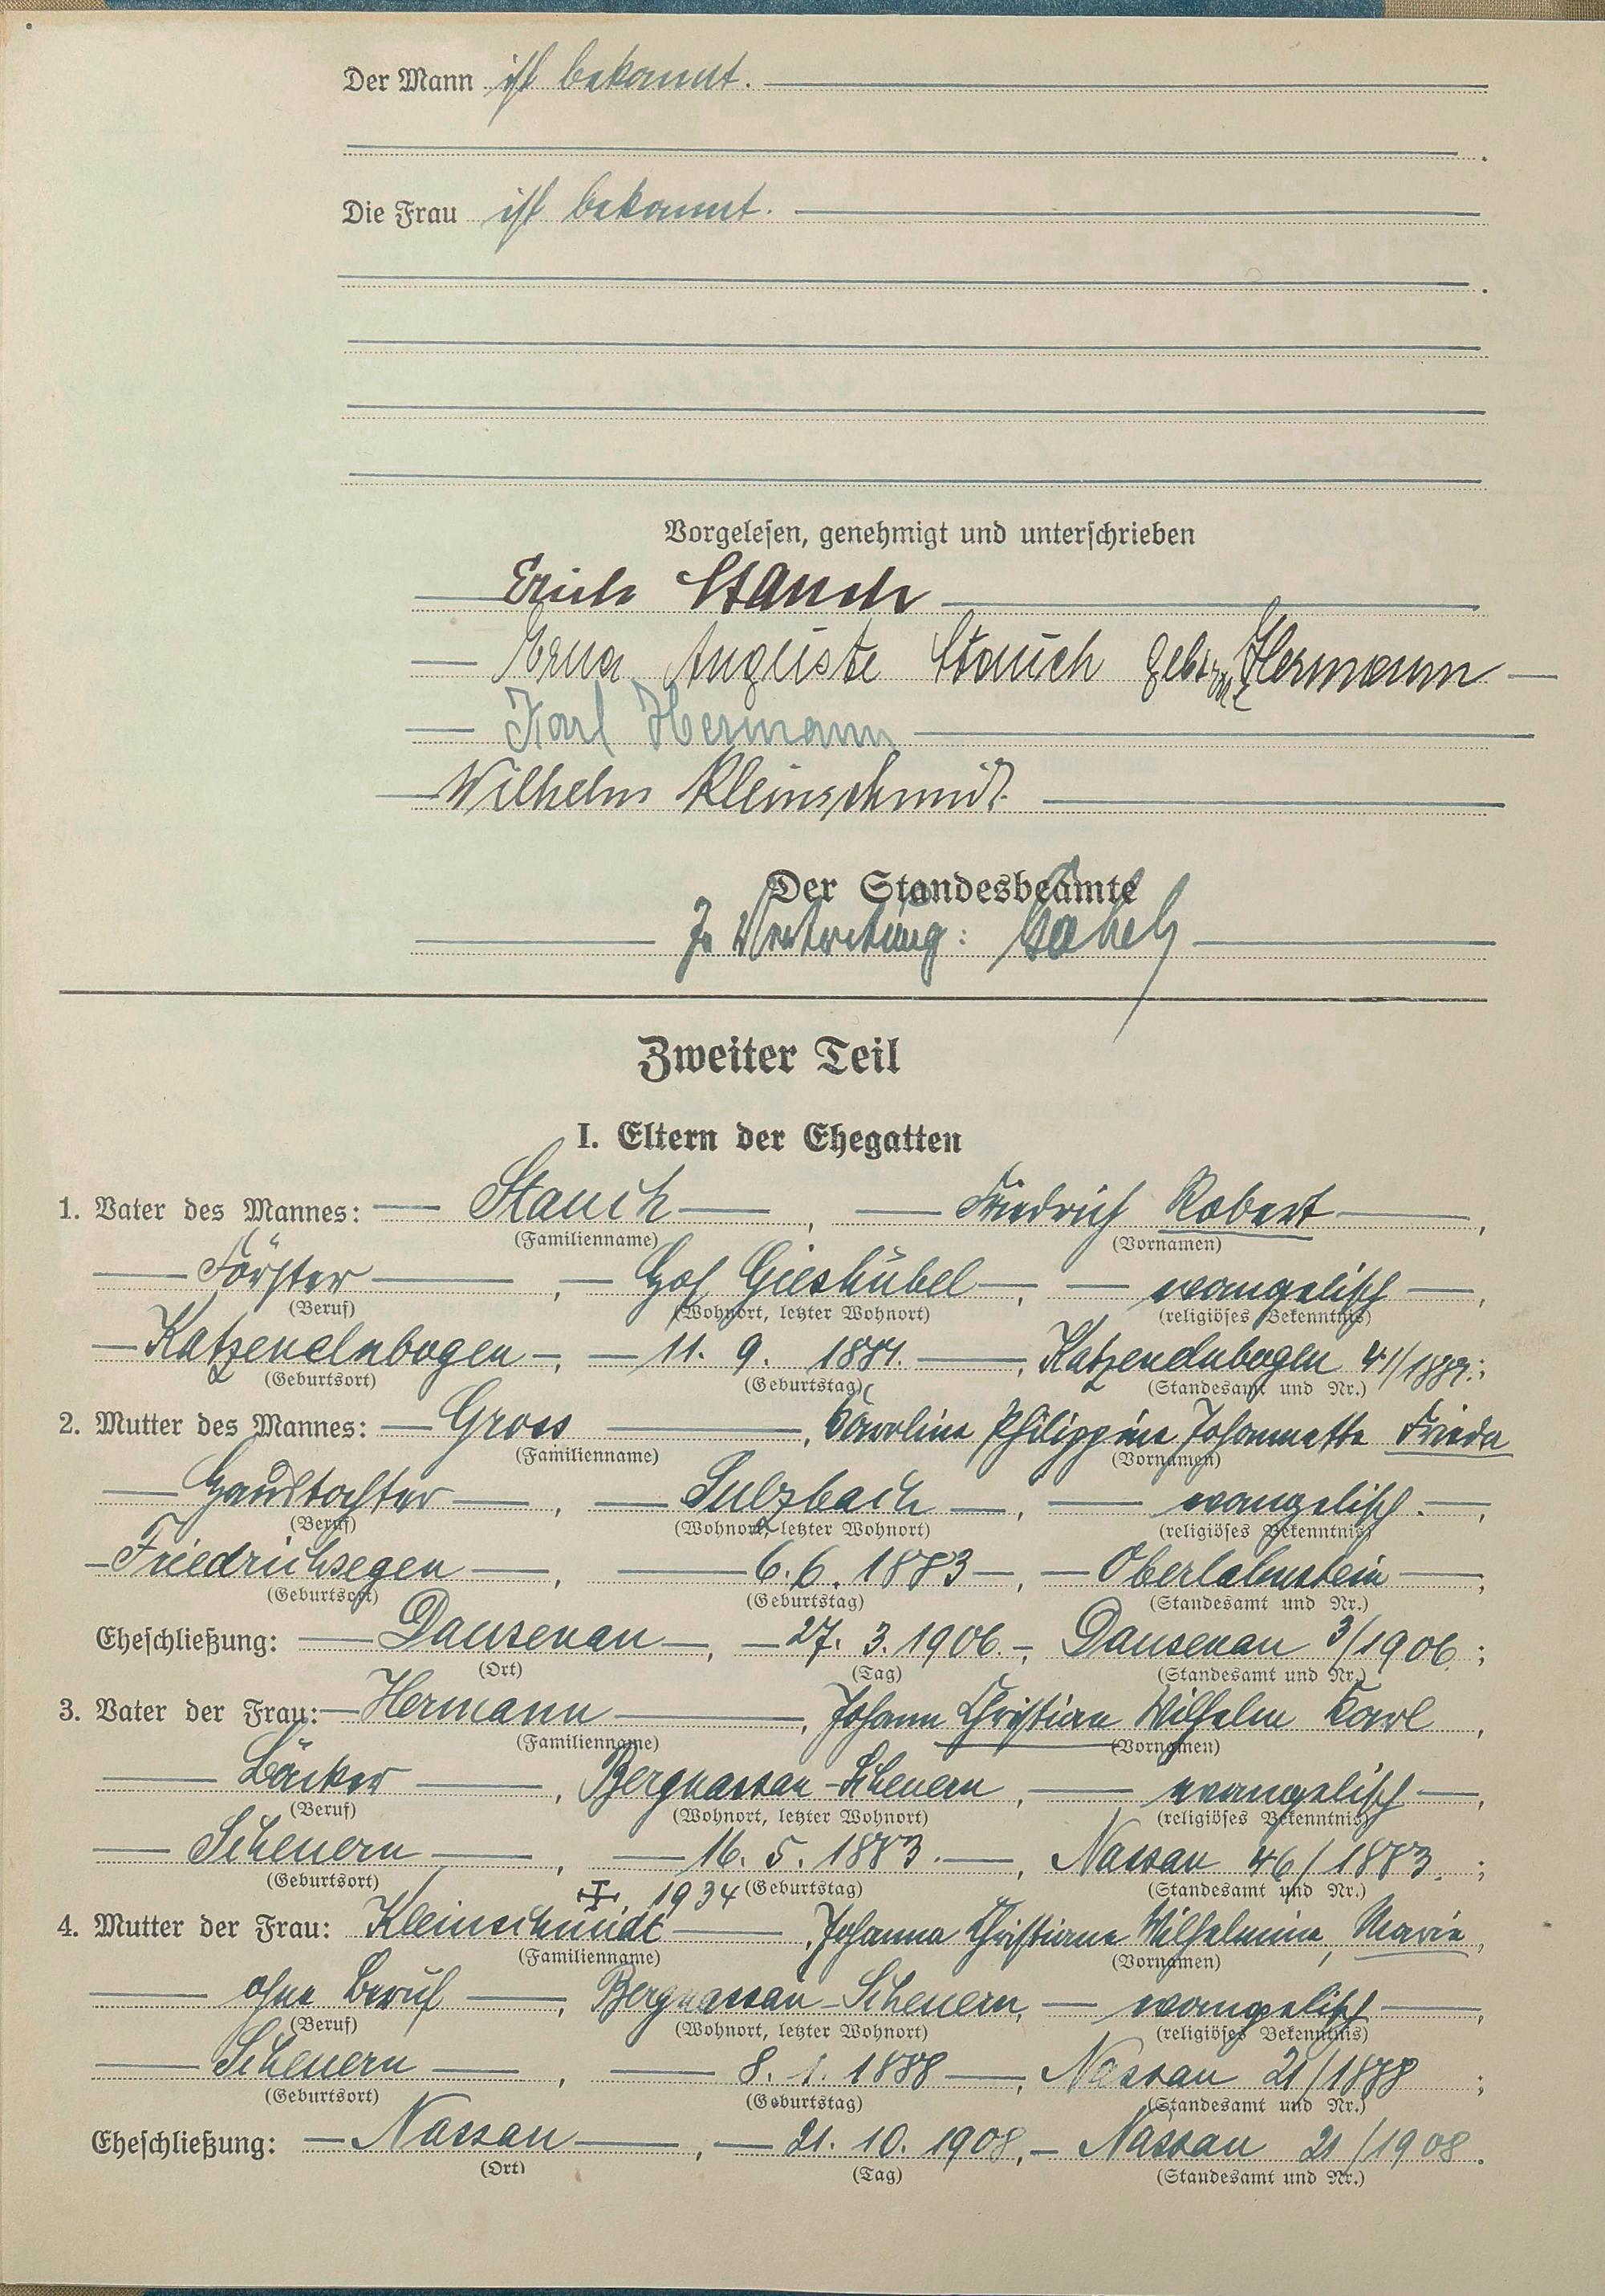 Der Mann ist bekannt.
Die Frau ist bekannt.
Vorgelesen, genehmigt und unterschrieben
Erich Stauch
Erna Auguste Stauch geb. Hermann
Karl Hermann
Wilhelm Kleinschmidt
Der Standesbeamte
In Vertretung:
Zweiter Teil
I. Eltern der Ehegatten
1. Vater des Mannes: Stauch, Friedrich Robert,
(Familienname) (Vornamen)
Förster, Hof Gieshübel, evangelisch,
(Beruf) (Wohnort, letzter Wohnort) (religiöses Bekenntnis)
Katzenelnbogen, 11. 9. 1881., Katzenelnbogen 41/1881.;
(Geburtsort) (Geburtstag) (Standesamt und Nr.)
2. Mutter des Mannes: Gross, Caroline Philippine Johannette Frieda
(Familienname) (Vornamen)
Haustochter, Sulzbach, evangelisch.,
(Beruf) (Wohnort, letzter Wohnort) (religiöses Bekenntnis)
Friedrichsegen, 6. 6. 1883, Oberlahnstein;
(Geburtsort) (Geburtstag) (Standesamt und Nr.)
Eheschließung: Dausenau, 27. 3. 1906., Dausenau 3/1906;
(Ort) (Tag) (Standesamt und Nr.)
3. Vater der Frau: Hermann, Johann Christian Wilhelm Karl,
(Familienname) (Vornamen)
Bäcker, Bergnassau-Scheuern, evangelisch,
(Beruf) (Wohnort, letzter Wohnort) (religiöses Bekenntnis)
Scheuern, 16. 5. 1883., Nassau 46/1883.;
(Geburtsort) (Geburtstag) (Standesamt und Nr.)
1934
4. Mutter der Frau: Kleinschmidt, Johanna Christiane Wilhelmine, Marie,
(Familienname) (Vornamen)
ohne Beruf, Bergnassau-Scheuern, evangelisch,
(Beruf) (Wohnort, letzter Wohnort) (religiöses Bekenntnis)
Scheuern, 8. 1. 1888, Nassau 21/1888;
(Geburtsort) (Geburtstag) (Standesamt und Nr.)
Eheschließung: Nassau, 21. 10. 1908, Nassau 21/1908.
(Ort) (Tag) (Standesamt und Nr.)